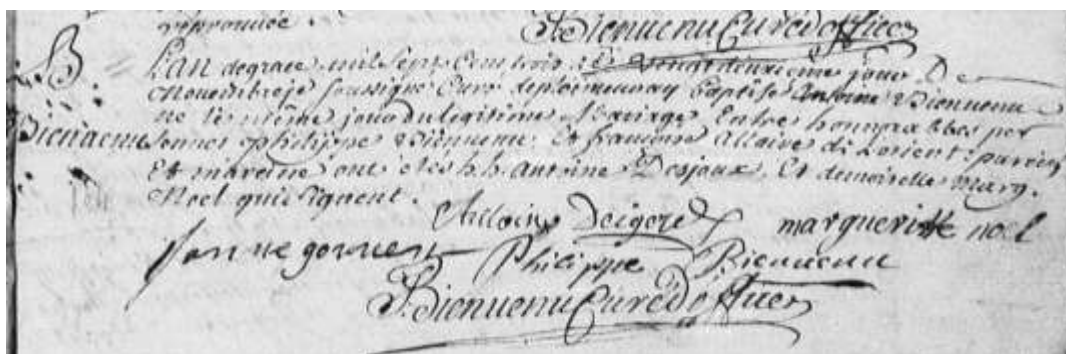 Bienvenu Curé d'office
B
L'an de grace mil Sept Cent trois le vingt deuxieme jour De
Novembre je soussigné Curé de ploemeur ay Baptisé Antoine Bienvenu
né le même jour du legitime Mariage Entre honnorables per
Bienvenu
sonnes philippe Bienvenu Et francoise Allaire de Lorient: parein
Et mareine ont étés h.h. Antoine Desjeux Et demoiselle Marg.
Noel qui signent.
margueritte noel
Philippe Bienvenu
Bienvenu Curé d'office